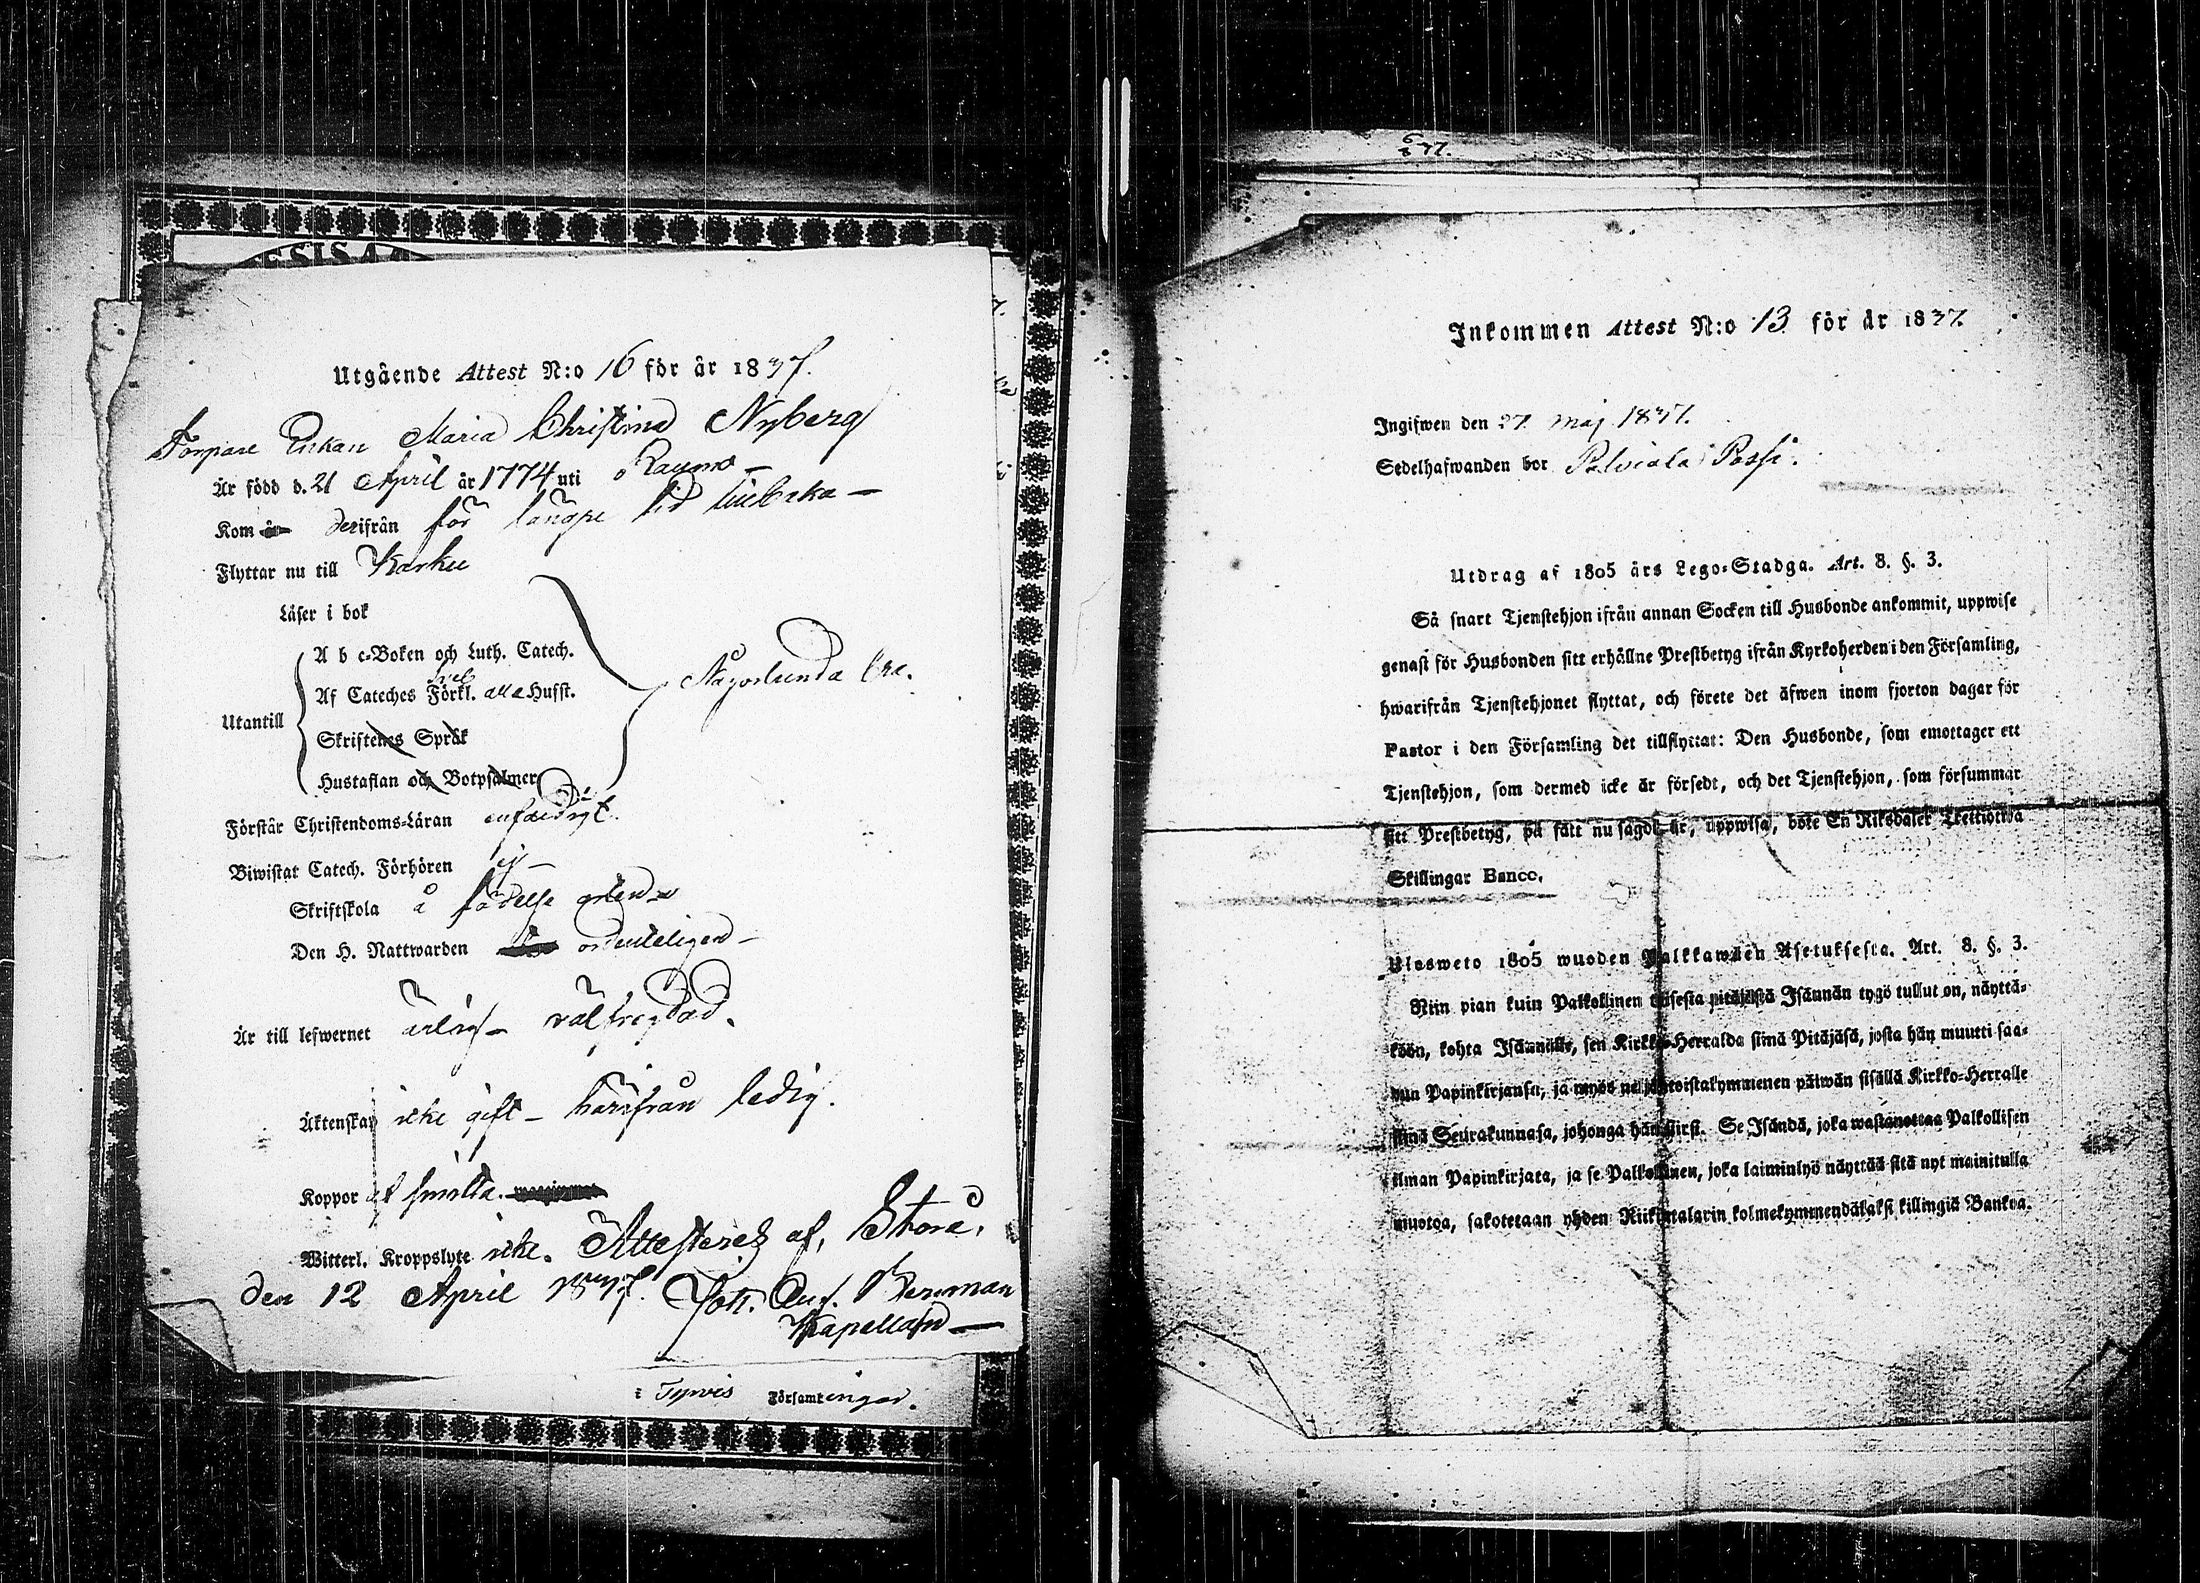 Utgående Attest N:o 16 för år 1837.
Torpare Enkan Maria Christina Nyberg
Är född d. 21 April år 1774 uti Raumo
Kom derifrån för längre tid tillbaka
Flyttar nu till Karku
Läser i bok
A b c-Boken och Luth. Catech.
Af Cateches Förkl. alla Husst.
Någorlunda bra.
Utantill
Skriftenes Språk
Hustaflan och Botpsalmer
Förstår Christendoms-Läran enfaldigt.
Biwistat Catech. Förhören ej
Skriftskola å födelse orten
Den H. Nattwarden ordenteligen
Är till lefwernet ärlig välfregdad.
Äktenskap icke gift härifrån ledig.
Koppor af smitta.
Witterl. Kroppslyte icke. Attesteres af,
den 12 April 1837. Joh.
Kapellan
i Tyrvis Församlingar.
6
3 37.
Inkommen Attest N:o 13 för år 1837.
Ingifwen den 27 maj 1837.
Sedelhafwanden bor Palviala Passi.
Utdrag af 1805 års Lego-Stadga. Art. 8. §. 3.
Så snart Tjenstehjon ifrån annan Socken till Husbonde ankommit, uppwise
genast för Husbonden sitt erhållne Prestbetyg ifrån Kyrkoherden i den Församling,
hwarifrån Tjenstehjonet flyttat, och förete det äfwen inom fjorton dagar för
Pastor i den Församling det tillflyttat: Den Husbonde, som emottager ett
Tjenstehjon, som dermed icke är försedt, och det Tjenstehjon, som försummar
sitt Prestbetyg, på sätt nu sagdt är, uppwisa, böte En Riksdaler Trettiotwå
Skillingar Banco.
Ulosweto 1805 wuoden Palkkawäen Asetuksesta. Art. 8. §. 3.
Niin pian kuin Palkollinen toisesta pitäjästä Isännän tygö tullut on, näyttä-
köön, kohta Isännälle, sen Kirkko-Herralda siinä Pitäjäsä, josta hän muutti saa-
dun Papinkirjansa, ja myös neljäntoistakymmenen päiwän sisällä Kirkko-Herralle
siinä Seurakunnasa, johonga hän siirsi. Se Isändä, joka wastanottaa Palkollisen
ilman Papinkirjata, ja se Palkollinen, joka laiminlyö näyttää sitä nyt mainitulla
muotoa, sakotetaan yhden Riikintalarin kolmekymmendäkaksi killingiä Bankoa.